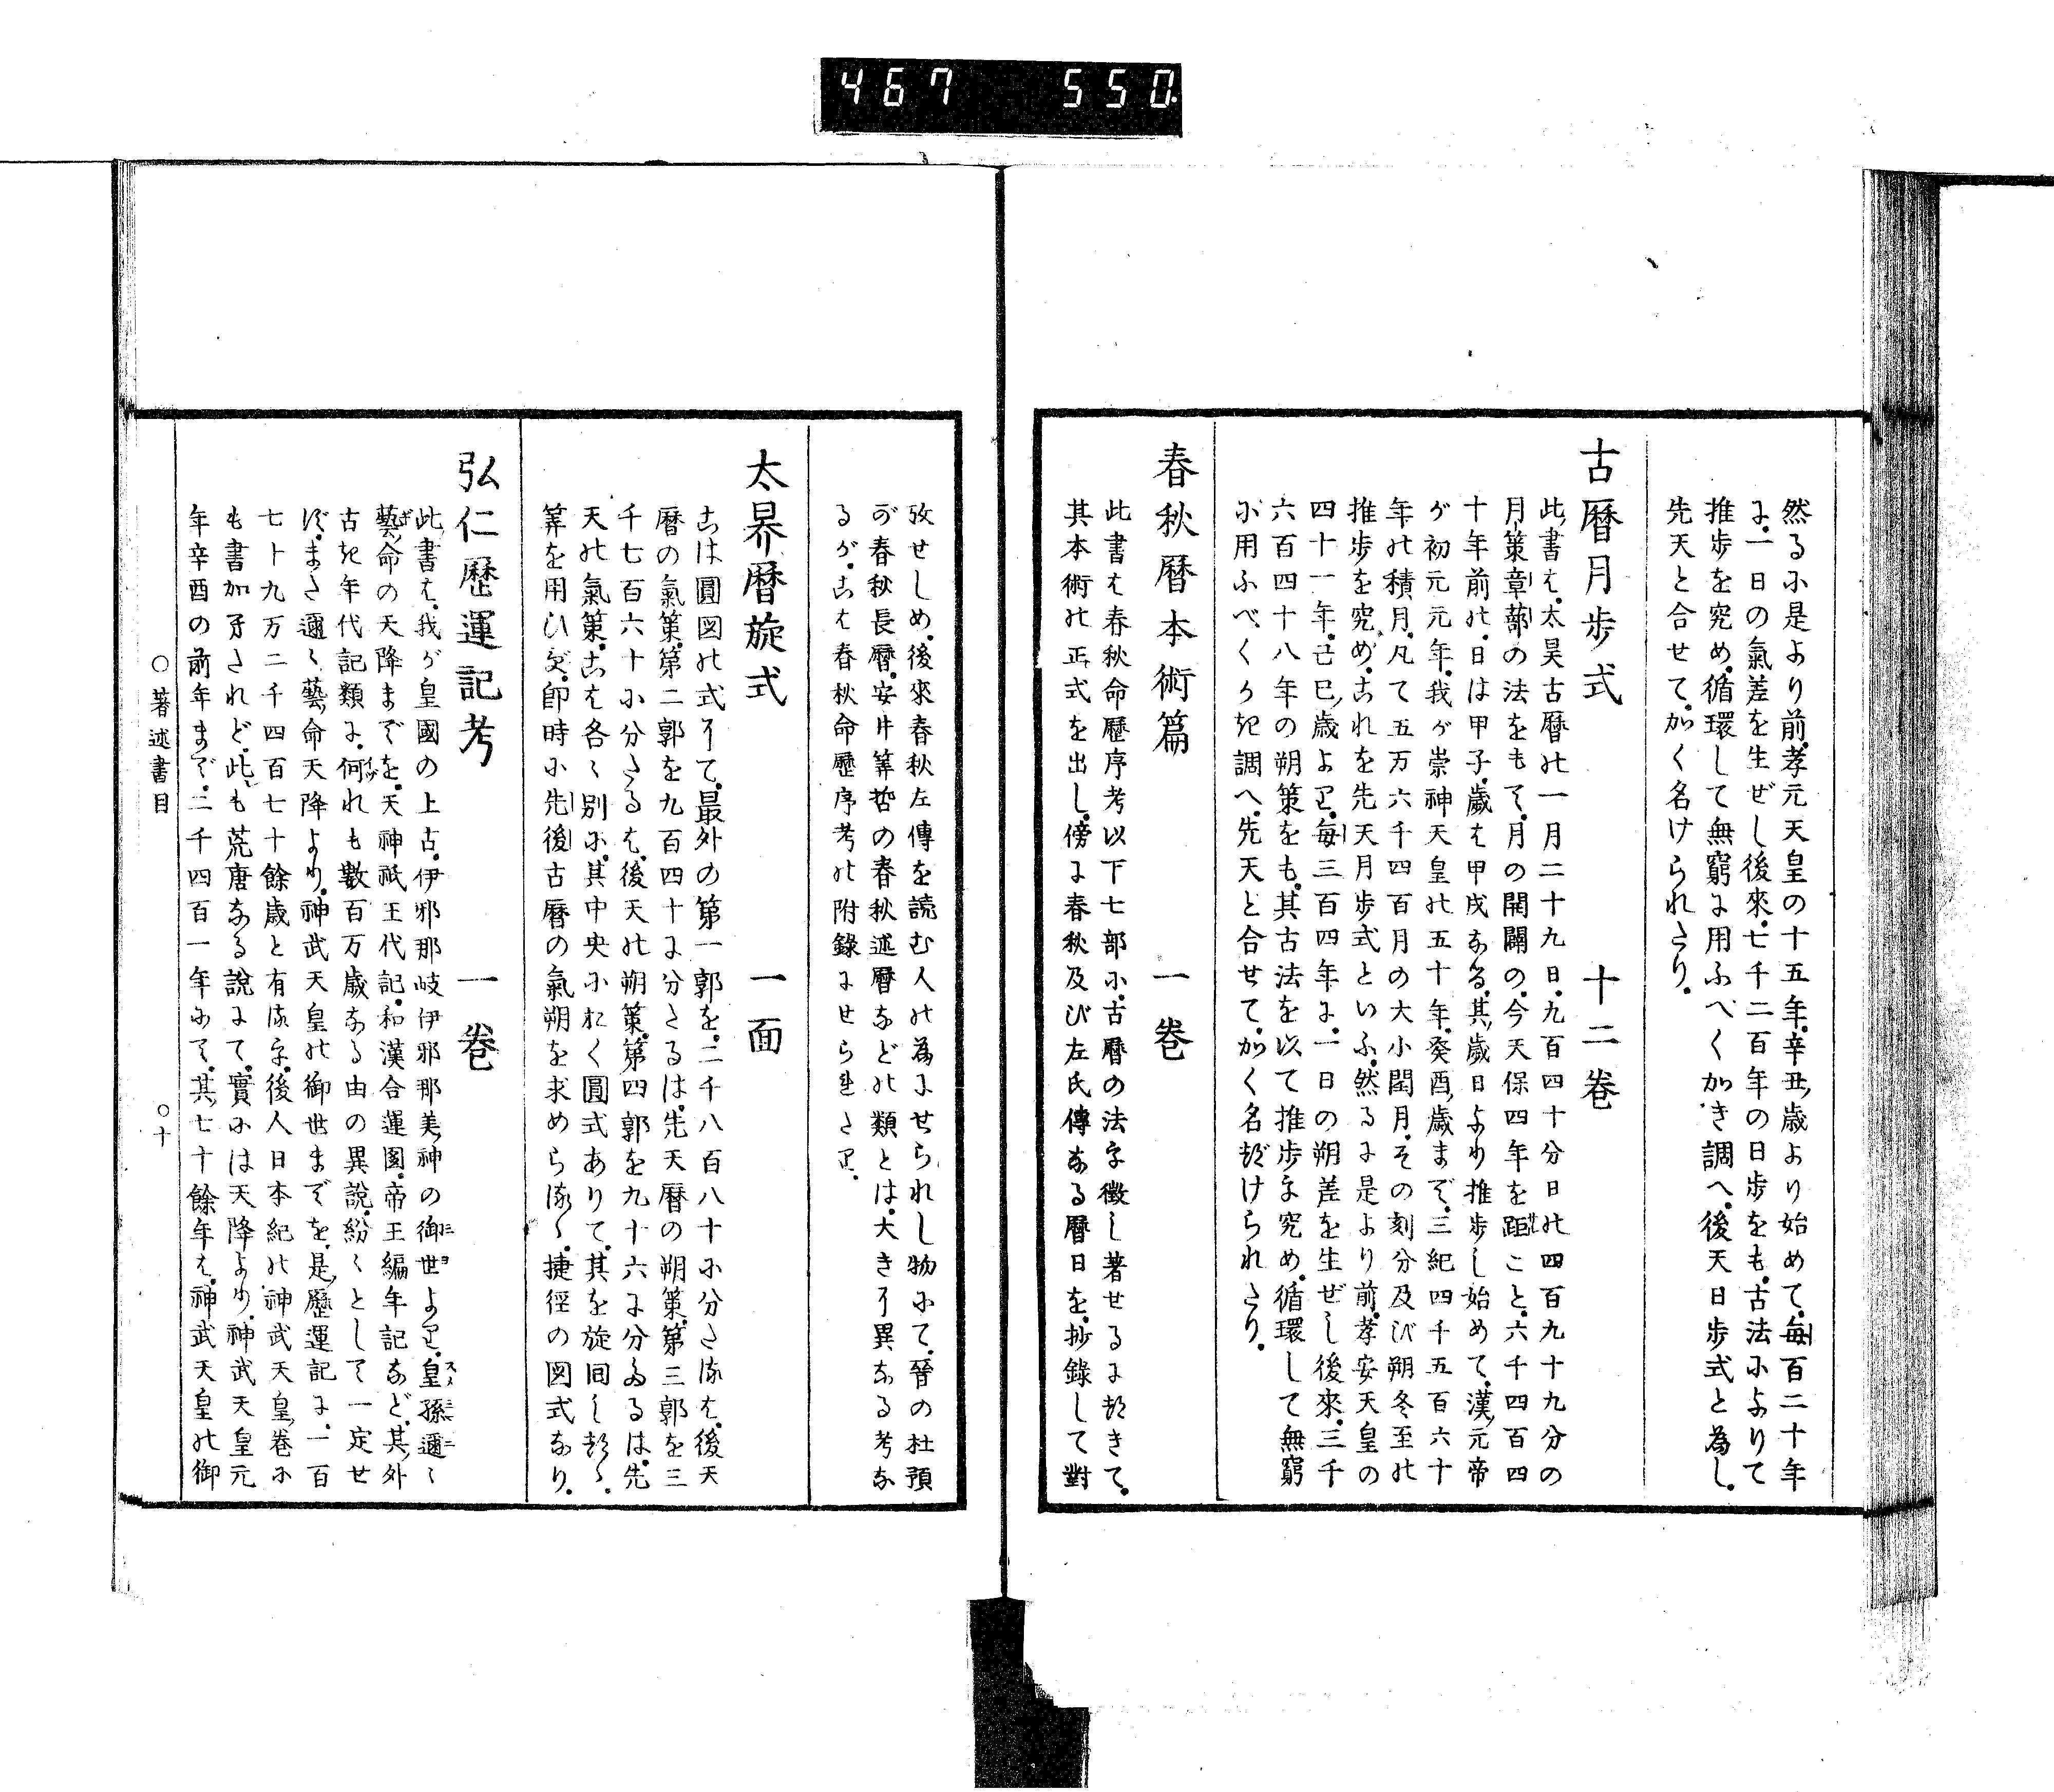 467 550
然るに是より前。孝元天皇の十五年。辛丑歳より始めて。毎百二十年
に。一日の氣差を生ぜし後來。七千二百年の日歩をも。古法によりて
推歩を究め。循環して無窮に用ふべくかき調へ。後天日歩式と為し。
先天と合せて。かく名けられたり。
古暦月歩式 十二卷
此書は。太昊古暦の一月二十九日。九百四十分日の四百九十九分の
月策章蔀の法をもて。月の開闢の。今天保四年を距こと。六千四百四
十年前の。日は甲子。歳は甲戌なる。其歳日より推歩し始めて。漢元帝
が初元元年。我が崇神天皇の五十年。癸酉歳まで。三紀四千五百六十
年の積月。凡て五万六千四百月の大小閏月。その刻分及び朔冬至の
推歩を究め。これを先天月歩式といふ。然るに是より前。孝安天皇の
四十一年。己巳歳より。毎三百四年に。一日の朔差を生ぜし後來。三千
六百四十八年の朔策をも。其古法を以て推歩を究め。循環して無窮
に用ふべくかき調へ。先天と合せて。かく名づけられたり。
春秋暦本術篇 一卷
此書は春秋命歷序考以下七部に。古暦の法を徴し著せるに就きて。
其本術の正式を出し。傍に春秋及び左氏傳なる暦日を。抄錄して對
攷せしめ。後來春秋左傳を読む人の為にせられし物にて。晉の杜預
が春秋長暦。安井筭哲の春秋述暦などの類とは。大きに異なる考な
るが。こは春秋命歷序考の附錄にせられたり。
太昦暦旋式 一面
こは圓図の式にて。最外の第一郭を。二千八百八十に分たるは。後天
暦の氣策。第二郭を九百四十に分たるは。先天暦の朔策。第三郭を三
千七百六十に分たるは。後天の朔策。第四郭を九十六に分るは。先
天の氣策。こは各〻別に。其中央におく圓式ありて。其を旋囘し就〻。
筭を用ひず。即時に先後古暦の氣朔を求めらるゝ。捷徑の図式なり。
弘仁歷運記考 一卷
此書は。我が皇國の上古。伊邪那岐伊邪那美神の御世より。皇孫邇〻
藝命の天降までを。天神祇王代記。和漢合運圖。帝王編年記など。其外
古き年代記類に。何れも數百万歳なる由の異說。紛〻として一定せ
ず。また邇〻藝命天降より。神武天皇の御世までを。是歷運記に。一百
七十九万二千四百七十餘歳と有るを。後人日本紀の神武天皇卷に
も書加了されど。此も荒唐なる說にて。實には天降より。神武天皇元
年辛酉の前年まで。二千四百一年にて。其七十餘年は。神武天皇の御
○著述書目 ○十